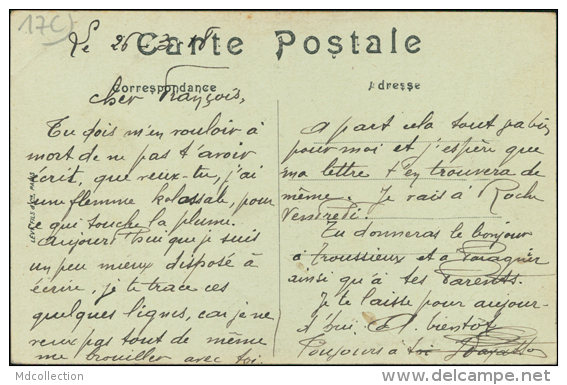 17C)
Le 26
Carte Postale
Correspondance
Adresse
Cher François,
Tu dois m'en vouloir à
mort de ne pas t'avoir
écrit, que veux-tu, j'ai
une flemme kolossale, pour
ce qui touche la plume.
Aujourd'hui que je suis
un peu mieux disposé à
écrire, je te trace ces
quelques lignes, car je ne
veux pas tout de même
me brouiller avec toi.
A part cela tout va
pour moi et j'espère que
ma lettre t'en trouvera de
même. Je vais à Roche
Vendredi.
Tu donneras le bonjour
à Troussieux et à
ainsi qu'à tes Parents.
Je te laisse pour aujour-
d'hui. A bientôt
Toujours à toi
LEVY FILS & Cie, PARIS
Mdcollection
delcampe.net